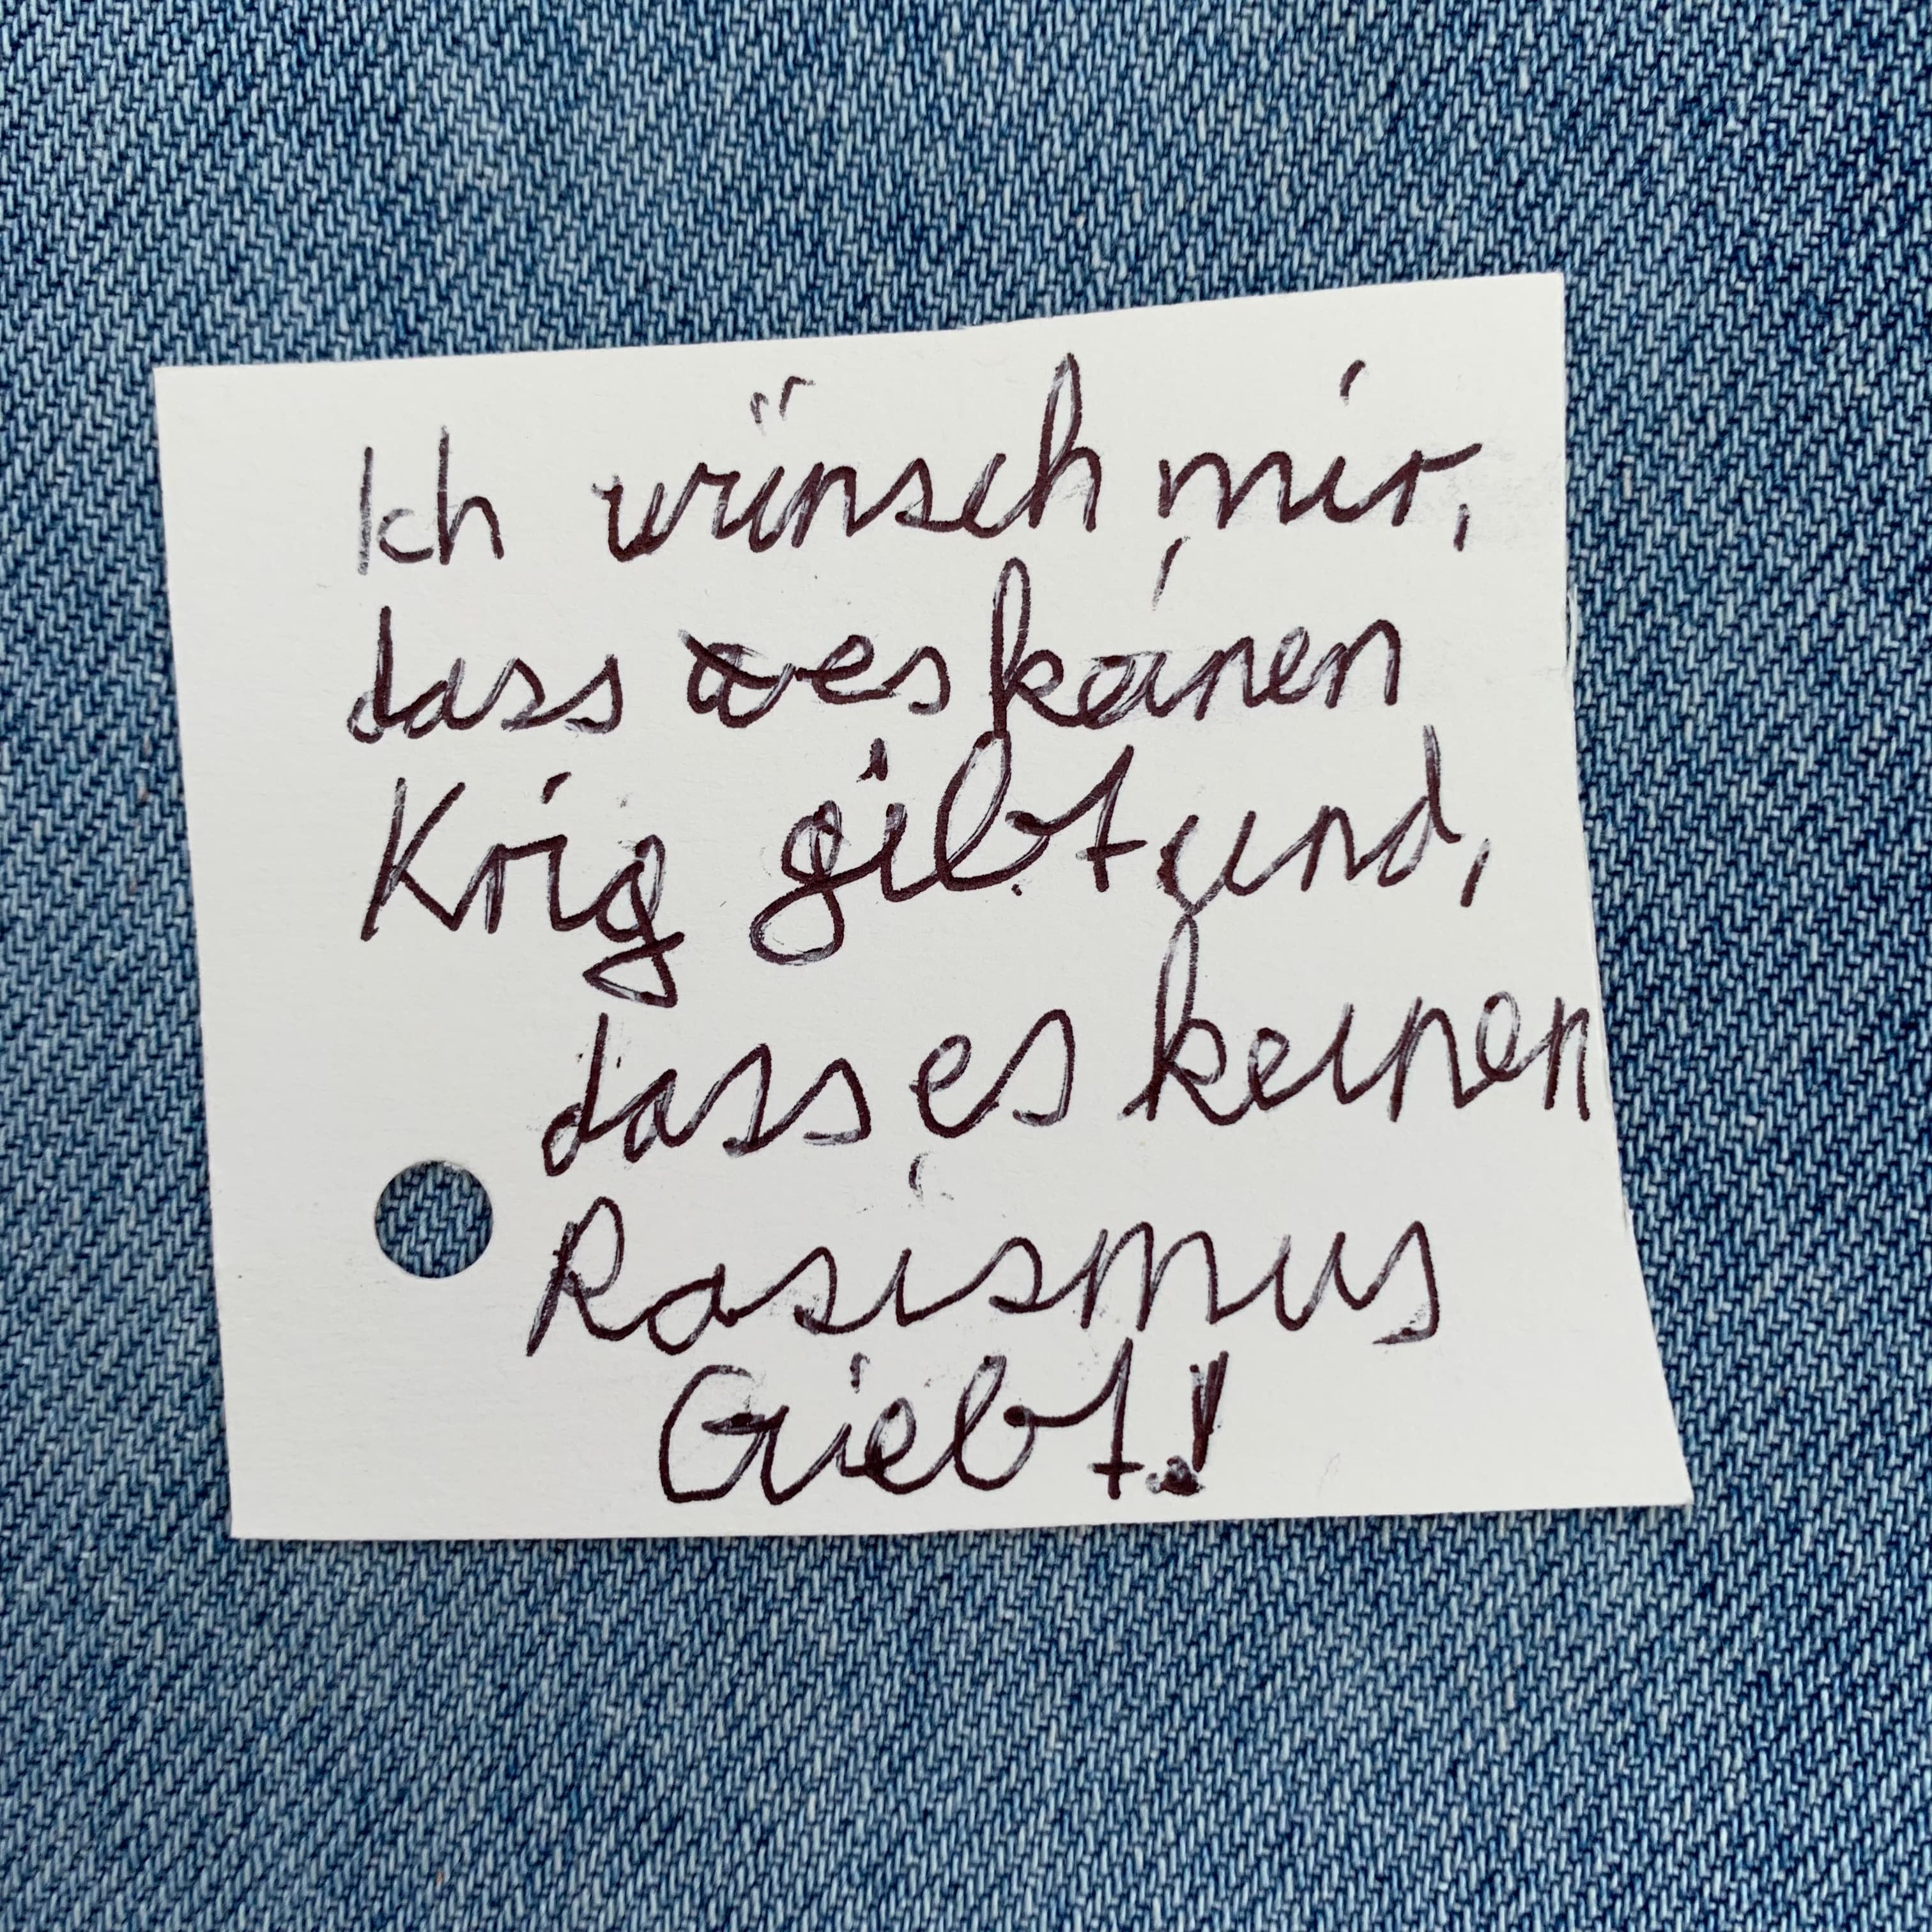 Ich wünsch mir,
dass es keinen
Krig gibt und,
dass es keinen
Rasismus
Giebt!